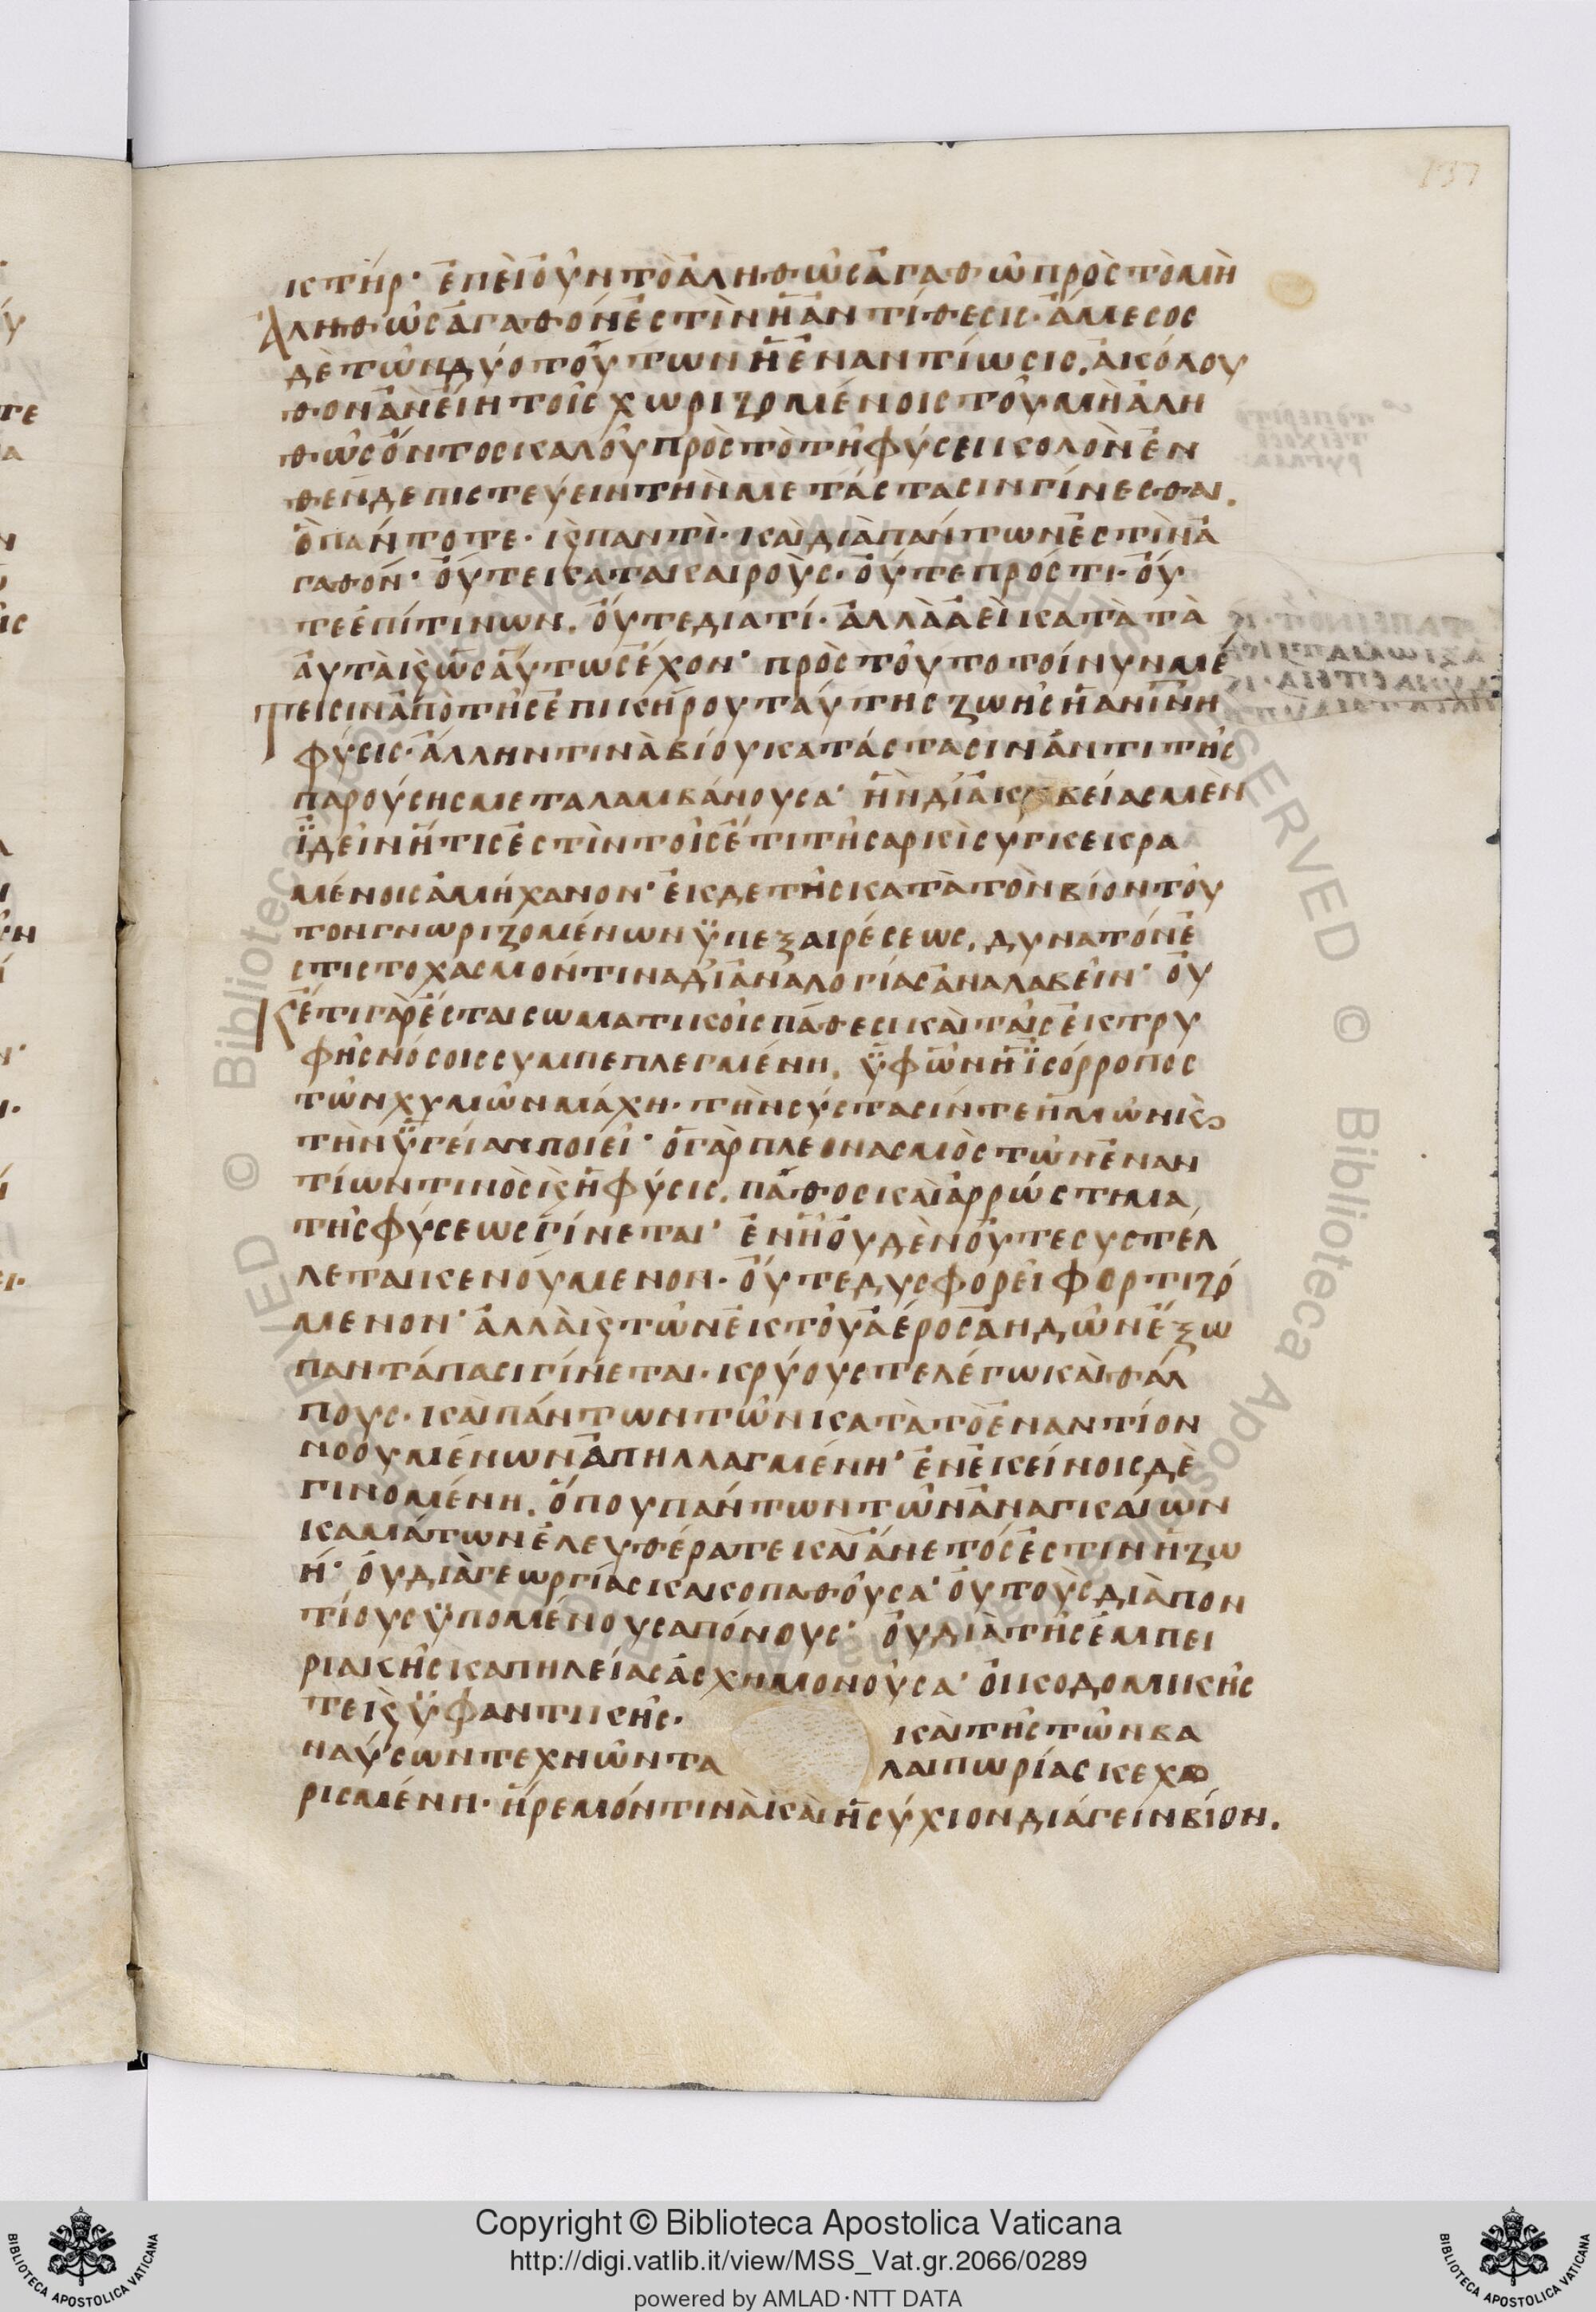 137
κτήρ· ἐπεὶ οὖν τὸ ἀληθῶς ἀγαθῶ πρὸς τὸ μὴ
ἀληθῶς ἀγαθόν ἐστὶν ἡ ἀντίθεσις· ἄμεσος
δὲ τῶν δύο τούτων ἡ ἐναντίωσις, ἀκόλου
θον ἂν εἴη τοῖς χωριζομένοις τοῦ μὴ ἀλη
θῶς ὄντος καλοῦ πρὸς τὸ τῇ φύσει καλὸν ἐν
θένδε πιστεύειν τὴν μετάστασιν γίνεσθαι.
ὃ πάντοτε· κ παντὶ· καὶ διὰ πάντων ἐστὶν ἀ
γαθόν· οὔτε κατα καιροὺς· οὔτε πρός τι· οὔ
τε ἐπί τινων. οὔτε διατί· ἀλλὰ ἀεὶ κατὰ τὰ
αὐτὰ κ ὡσαύτως ἔχον· πρὸς τοῦτο τοίνυν μέ
τεισιν ἀπὸ τῆς ἐπικήρου ταύτης ζωῆς ἡ ἀνίνη
φύσις· ἄλλην τινὰ βίου κατάστασιν ἀντι τῆς
παρούσης μεταλαμβάνουσα· ἣν δι ἀκριβείας μὲν
ἰδεῖν ἥτις ἐστὶν τοῖς ἔτι τῇ σαρκὶ συγκεκρα
μένοις ἀμήχανον· ἐκ δε τῆς κατὰ τὸν βίον τοῦ
τον γνωριζομένων ὑπεξαιρέσεως, δυνατόν ἐ
στι στοχασμόν τινα δι ἀναλογίας ἀναλαβεῖν· οὐ
κέτι γὰρ ἔσται σωματικοῖς πάθεσι καὶ ταῖς ἐκ τρυ
φῆς νόσοις συμπεπλεγμένη. ὑφ ὧν ἡ ἰσόρροπος
τῶν χυμῶν μάχη· τὴν σύστασίν τε ἡμῶν κ
τὴν ὑγείαν ποιεῖ· ὁ γὰρ πλεονασμὸς τῶν ἐναν
τίων τινὸς κ ἡ φύσις. πάθος καὶ ἀρρώστημα
τῆς φύσεως γίνεται· ἐν ᾗ οὐδὲν οὔτε συστέλ
λεται κενούμενον· οὔτε δυσφορεῖ φορτιζό
μενον· ἀλλὰ κ τῶν ἐκ τοῦ ἀέρος ἀηδῶν ἔξω
παντάπασι γίνεται· κρύους τε λέγω καὶ θάλ
πους· καὶ πάντων τῶν κατὰ τὸ ἐναντίον
νοουμένων ἀπηλλαγμένη· ἐν ἐκείνοις δὲ
γινομένη. ὅπου πάντων τῶν ἀναγκαίων
καμάτων ἐλευθέρα τε καὶ ἄνετός ἐστιν ἡ ζω
ή· οὐ διὰ γεωργίας κακοπαθοῦσα· οὐ τοὺς διὰ πον
τίους ὑπομένουσα πόνους· οὐ διὰ τῆς ἐμπει
ριακῆς καπηλείας ἀσχημονοῦσα· οἰκοδομικῆς
τε κ ὑφαντικῆς· καὶ τῆς τῶν βα
ναύσων τεχνῶν ταλαιπωρίας κεχω
ρισμένη· ἤρεμόν τινὰ καὶ ἡσύχιον διάγειν βίον.
© Biblioteca Apostolica Vaticana ALL RIGHTS RESERVED
Copyright © Biblioteca Apostolica Vaticana
http://digi.vatlib.it/view/MSS_Vat.gr.2066/0289
powered by AMLAD·NTT DATA
BIBLIOTECA APOSTOLICA VATICANA
BIBLIOTECA APOSTOLICA VATICANA